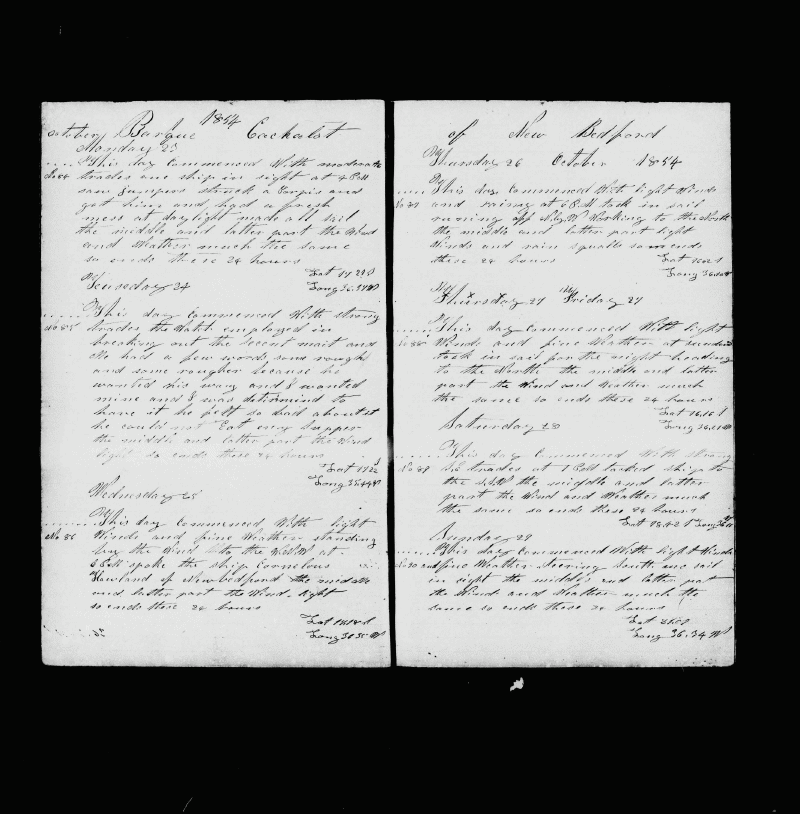 October Barque 1854 Cachalot
Monday 23
This day Commenced With moderate
No 84 trades one ship in sight at 4 PM
saw Jumpers struck a Porpis and
got him and had a fresh
mess at daylight made all sail
the middle and latter part the Wind
and Weather much the same
so ends these 24 hours
Lat 17 23 S
Long
Teusday 24
This day Commenced With strong
No 85 trades the Watch employed in
breaking out the and
he had a few words some rough
and some rougher because he
wanted his way and I wanted
mine and I was determind to
have it he felt so bad about it
he could not Eat eny Supper
the middle and latter part the Wind
light so ends these 24 hours
Lat
Long
Wednesday 25
This day Commenced With light
No 86 Winds and fine Weather standing
by the Wind to the
6 PM spoke the ship Cornelous
Howland of New bedford the middle
and latter part the Wind light
so ends these 24 hours
Lat
Long
of New Bedford
Thursday 26 October 1854
This day Commenced With light Winds
No 87 and rainy at 6 PM took in sail
running off Working to the North
the middle and latter part light
Winds and rain squalls so ends
these 24 hours
Lat
Long
Thursday 27 Friday 27
This day Commenced With light
No 88 Winds and fine Weather at sundown
took in sail for the night heading
to the North the middle and latter
part the Wind and Weather much
the same so ends these 24 hours
Lat 16.16 S
Long
Saturday 28
This day Commenced With strong
No 89 S.E trades at 1 PM tacked ship to
the the middle and latter
part the Wind and Weather much
the same so ends these 24 hours
Lat Long
Sunday 29
This day Commenced With light Winds
No 90 and fine Weather Steering South one sail
in sight the middle and latter part
the Winds and Weather much the
same so ends these 24 hours
Lat
Long 36.34 W